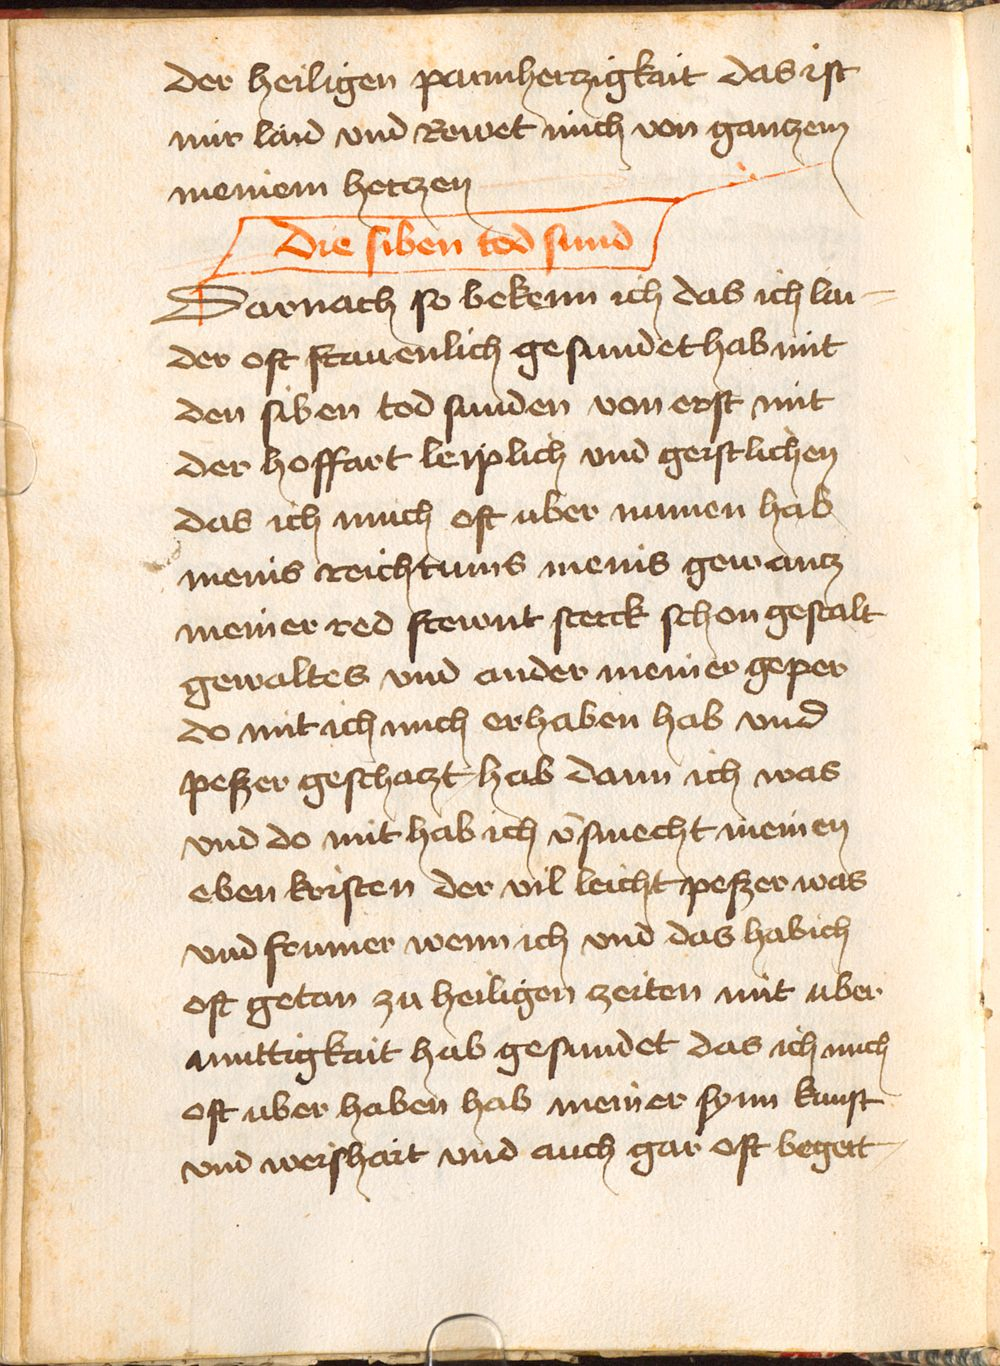 der heiligen parmherzigkait das ist
mir laid vnd Rewet mich von gantzem
meinem hertzen
Die siben tod sund
Darnach so bekenn ich das ich lai-
der oft frauenlich gesundet hab mit
den siben tod sunden von erst mit
der hoffart leiplich vnd geistlichen
das ich mich oft uber numen hab
meins reichtums meins gewantz
meiner red frewnt sterck schon gestalt
gewaltes vnd ander meiner geper
do mit ich mich erhaben hab vnd
peszer geschatzt hab dann ich was
vnd do mit hab ich v̄smecht meinen
eben kristen der vil leicht peszer was
vnd frumer wenn ich vnd das hab ich
oft getan zu heiligen zeiten mit uber
muttigkait hab gesundet das ich mich
oft uber haben hab meiner synn kunst
vnd weishait vnd auch gar oft begert